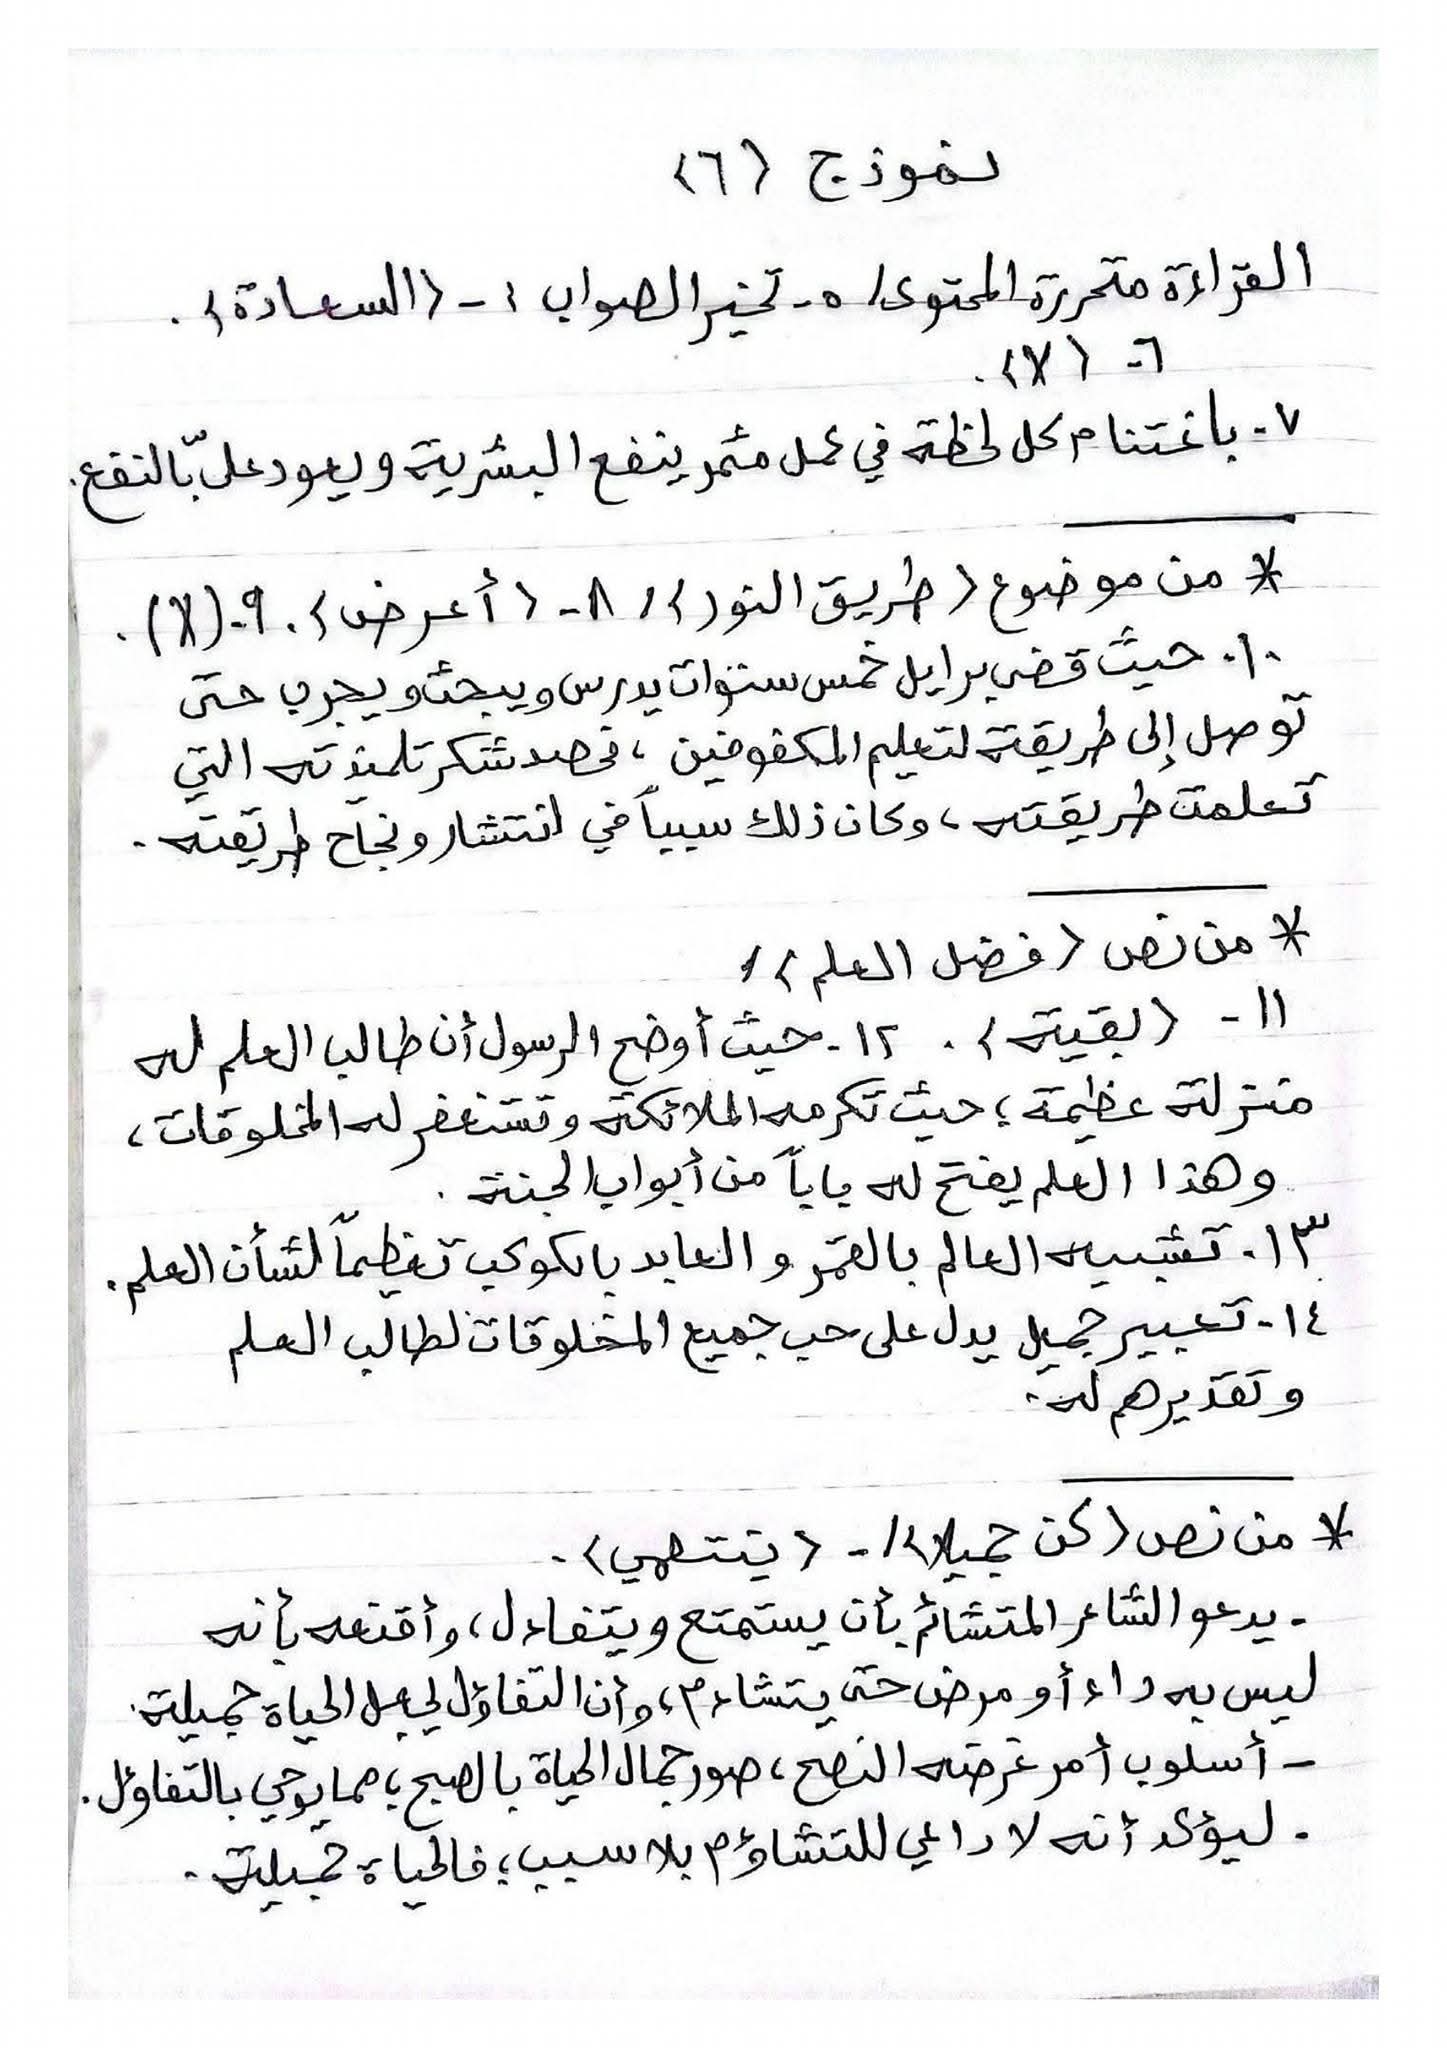 نموذج (٦)
القراءة متحررة المحتوى/ ٥- تخير الصواب :- (السعادة).
٦- (X).
٧- باغتنام كل لحظة في عمل مثمر ينفع البشرية ويعود علىّ بالنفع.
* من موضوع (طريق النور)/ ٨- (أعرض). ٩- (X).
١٠- حيث قضى برايل خمس سنوات يدرس ويبحث ويجرب حتى
توصل إلى طريقة لتعليم المكفوفين، فحصد شكر تلميذته التي
تعلمت طريقته، وكان ذلك سبباً في انتشار ونجاح طريقته.
* من نص (فضل العلم)/
١١- (بقية). ١٢- حيث أوضح الرسول أن طالب العلم له
منزلة عظيمة؛ حيث تكرمه الملائكة وتستغفر له المخلوقات،
وهذا العلم يفتح له باباً من أبواب الجنة.
١٣- تشبيه العالم بالقمر والعابد بالكوكب تعظيماً لشأن العلم.
١٤- تعبير جميل يدل على حب جميع المخلوقات لطالب العلم
وتقديرهم له.
* من نص (كن جميلا)/- (ينتهي).
- يدعو الشاعر المتشائم بأن يستمتع ويتفاءل، وأقنعه بأنه
ليس به داء أو مرض حتى يتشاءم، وأن التفاؤل يجعل الحياة جميلة.
- أسلوب أمر غرضه النصح، صور جمال الحياة بالصبح؛ مما يوحي بالتفاؤل.
- ليؤكد أنه لا داعي للتشاؤم بلا سبب؛ فالحياة جميلة.